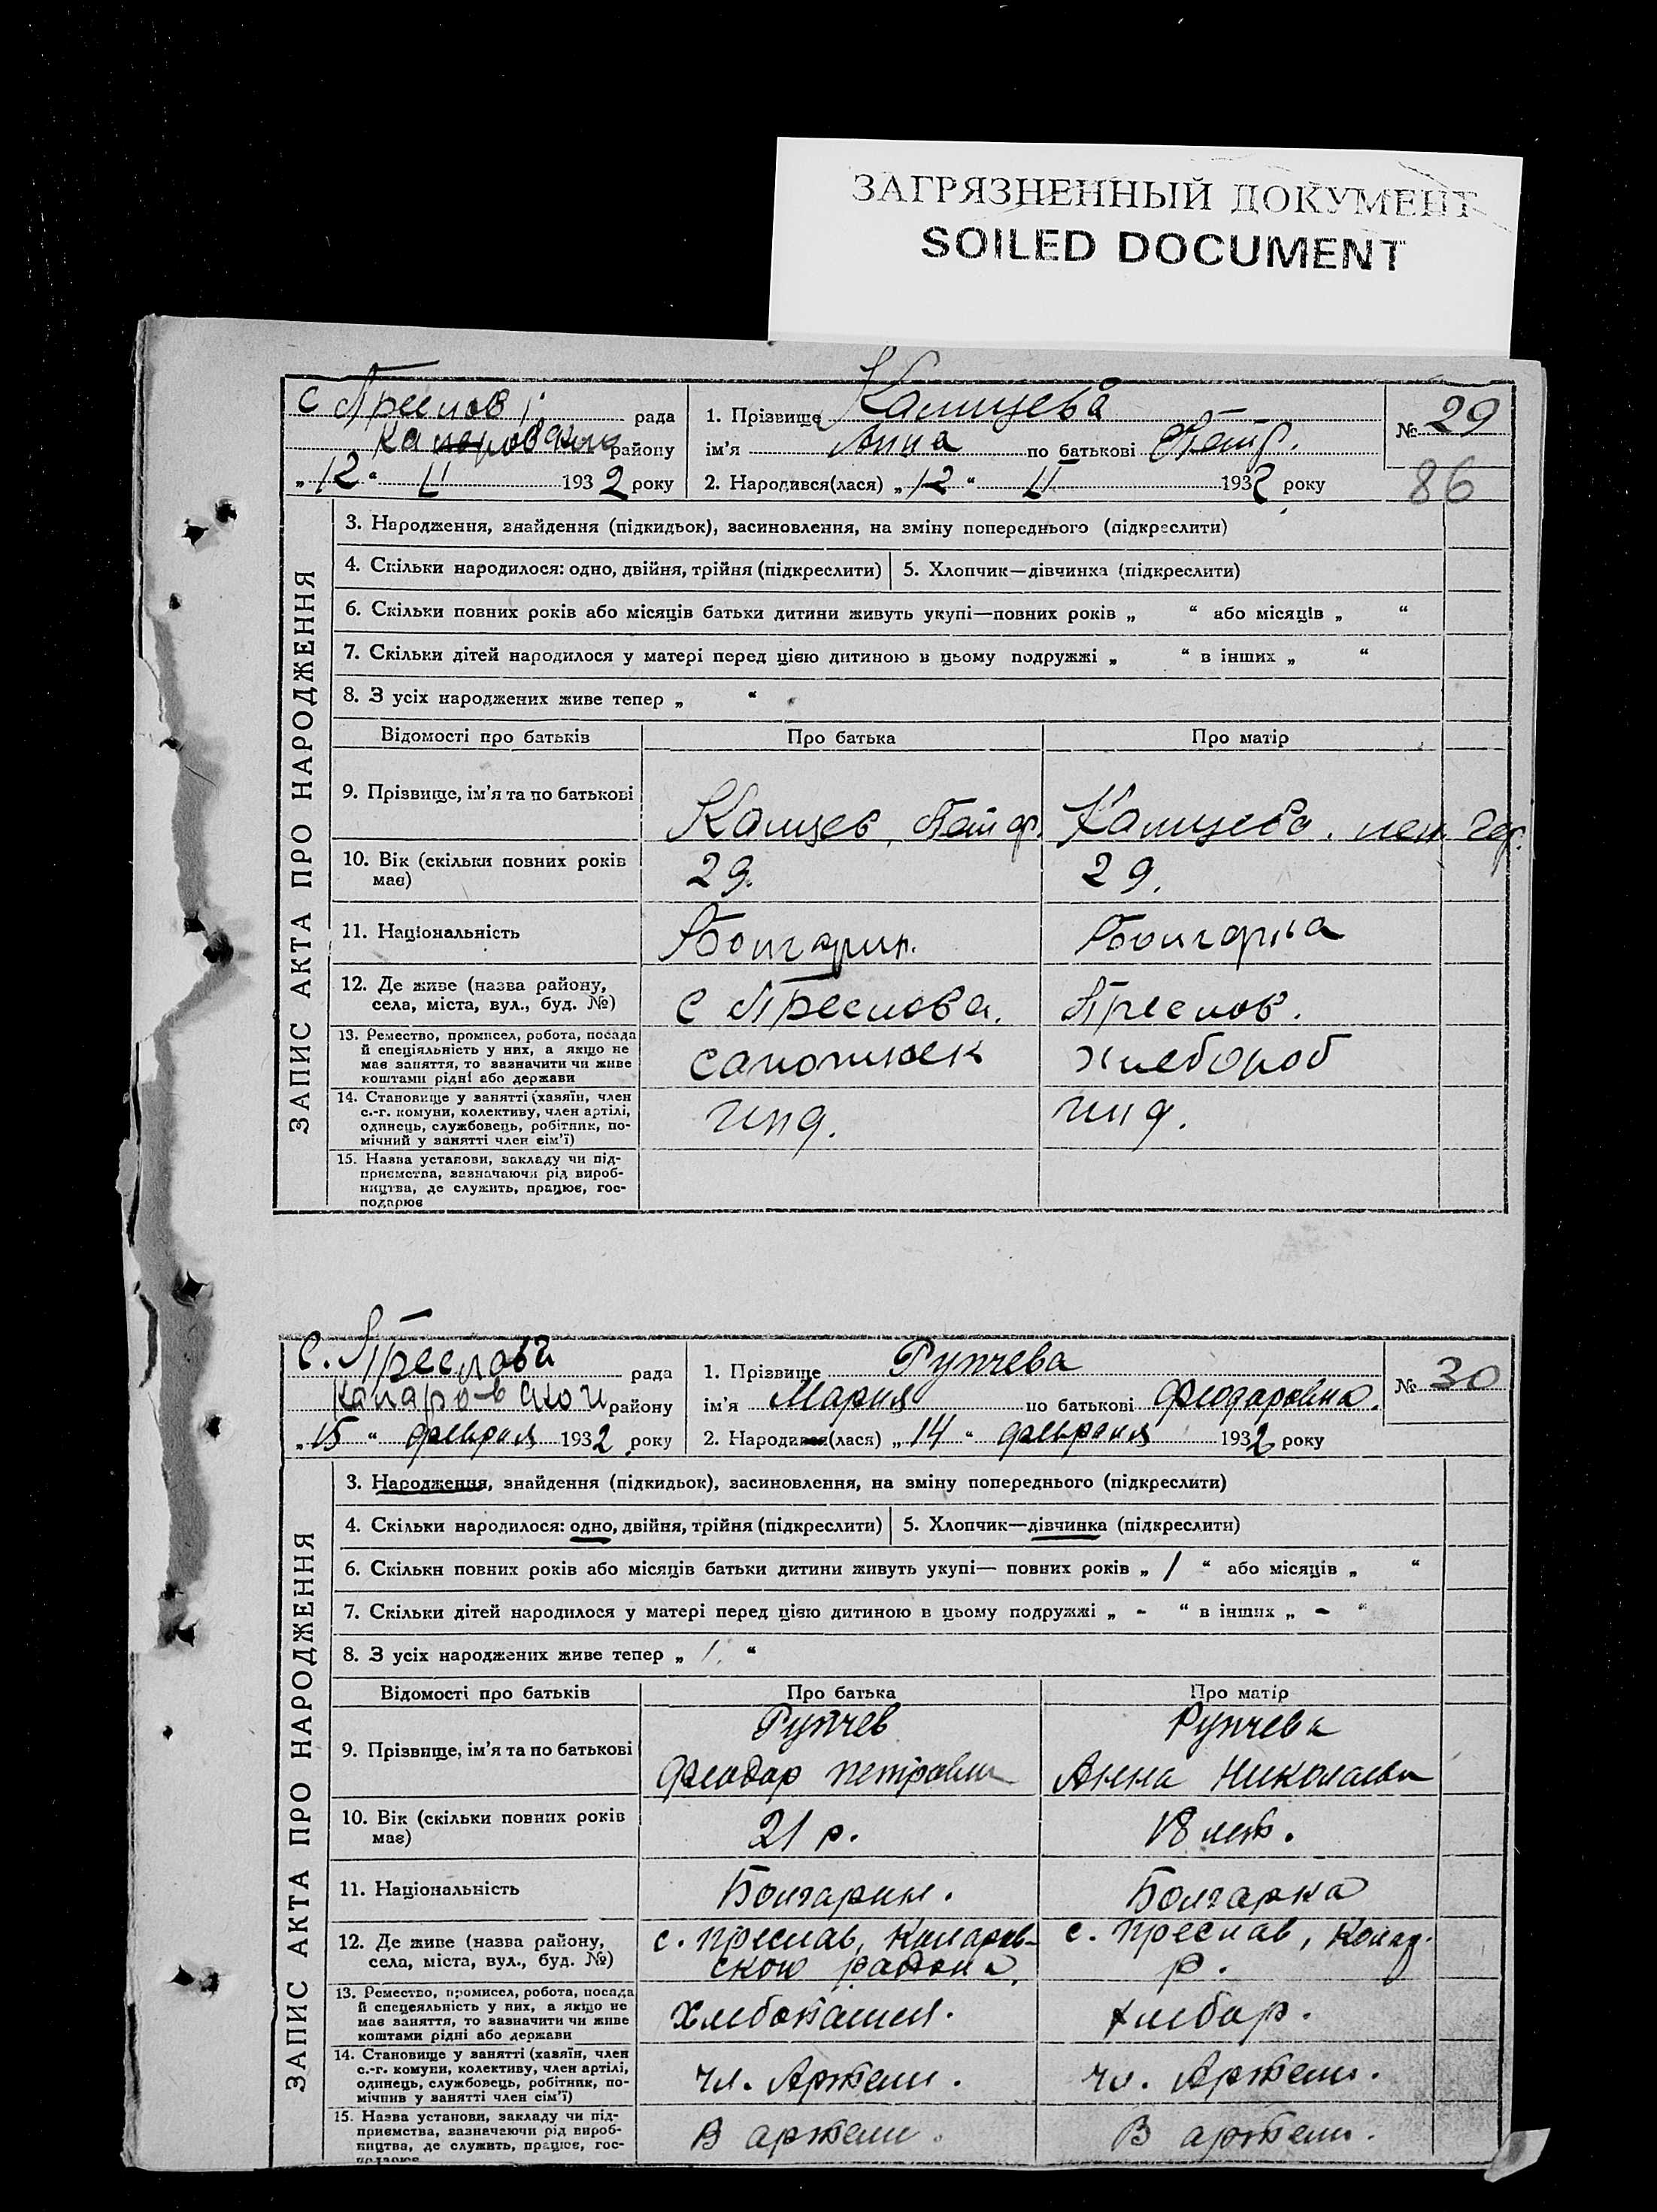 ЗАГРЯЗНЕННЫЙ ДОКУМЕНТ
SOILED DOCUMENT
с Преслов рада
району
„12“ II 1932 року
1. Прізвище Калицева
ім’я Анна по батькові Петр.
2. Народився(лася) „12“ II 1932 року
№ 29
86
ЗАПИС АКТА ПРО НАРОДЖЕННЯ
3. Народження, знайдення (підкидьок), засиновлення, на зміну попереднього (підкреслити)
4. Скільки народилося: одно, двійня, трійня (підкреслити) 5. Хлопчик—дівчинка (підкреслити)
6. Скільки повних років або місяців батьки дитини живуть укупі—повних років „ “ або місяців „ “
7. Скільки дітей народилося у матері перед цією дитиною в цьому подружжі „ “ в інших „ “
8. З усіх народжених живе тепер „ “
Відомості про батьків Про батька Про матір
9. Прізвище, ім’я та по батькові
Калицев, Петр. Калицева.
10. Вік (скільки повних років має)
29. 29.
11. Національність
Болгарин. Болгарка
12. Де живе (назва району,
села, міста, вул., буд. №)
с Преслова. Преслов.
13. Ремество, промисел, робота, посада
й спеціяльність у них, а якщо не
має заняття, то зазначити чи живе
коштами рідні або держави
хлебороб
14. Становище у занятті (хазяїн, член
с.-г. комуни, колективу, член артілі,
одинець, службовець, робітник, по-
мічний у занятті член сім’ї)
инд. инд.
15. Назва установи, закладу чи під-
приємства, зазначаючи рід вироб-
ництва, де служить, працює, гос-
подарює
с. Преслава рада
району
„15“ февраля 1932 року
1. Прізвище Рупчева
ім’я Мария по батькові Феодаровна.
2. Народився(лася) „14“ февраля 1932 року
№ 30
ЗАПИС АКТА ПРО НАРОДЖЕННЯ
3. Народження, знайдення (підкидьок), засиновлення, на зміну попереднього (підкреслити)
4. Скільки народилося: одно, двійня, трійня (підкреслити) 5. Хлопчик—дівчинка (підкреслити)
6. Скільки повних років або місяців батьки дитини живуть укупі— повних років „ 1 “ або місяців „ “
7. Скільки дітей народилося у матері перед цією дитиною в цьому подружжі „ - “ в інших „ - “
8. З усіх народжених живе тепер „ 1. “
Відомості про батьків Про батька Про матір
Рупчев Рупчева
9. Прізвище, ім’я та по батькові
Феодар Петрович Анна Николаевн
10. Вік (скільки повних років має)
21 р. 18 лет.
11. Національність
Болгарин. Болгарка
12. Де живе (назва району,
села, міста, вул., буд. №)
с. Преслав, Коларов- с. Преслав, Колар.
ского района. р.
13. Ремество, промисел, робота, посада
й спецеяльність у них, а якщо не
має заняття, то зазначити чи живе
коштами рідні або держави
хлебопашец. хлебор.
14. Становище у занятті (хазяїн, член
с.-г. комуни, колективу, член артілі,
одинець, службовець, робітник, по-
мічнив у занятті член сім’ї)
чл. Артели. чл. Артели.
15. Назва установи, закладу чи під-
приємства, зазначаючи рід вироб-
ництва, де служить, працює, гос-
подарює
В артели. В артели.